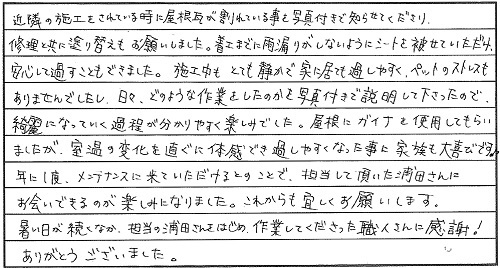 近隣の施工をされている時に屋根瓦が割れている事を写真付きで知らせてくださり、
修理と共に塗り替えもお願いしました。着工までに雨漏りがしないようにシートを被せていただけ、
安心して過すこともできました。施工中も とても静かで家に居ても過しやすく、ペットのストレスも
ありませんでしたし、日々、どのような作業をしたのかを写真付きで説明して下さったので、
綺麗になっていく過程が分かりやすく楽しみでした。屋根にガイナを使用してもらい
ましたが、室温の変化を直ぐに体感でき過しやすくなった事に家族も大喜びです。
年に1度、メンテナンスに来ていただけるとのことで、担当して頂いた浦田さんに
お会いできるのが楽しみになりました。これからも宜しくお願いします。
暑い日が続くなか、担当の浦田さんをはじめ、作業してくださった職人さんに感謝！
ありがとうございました。